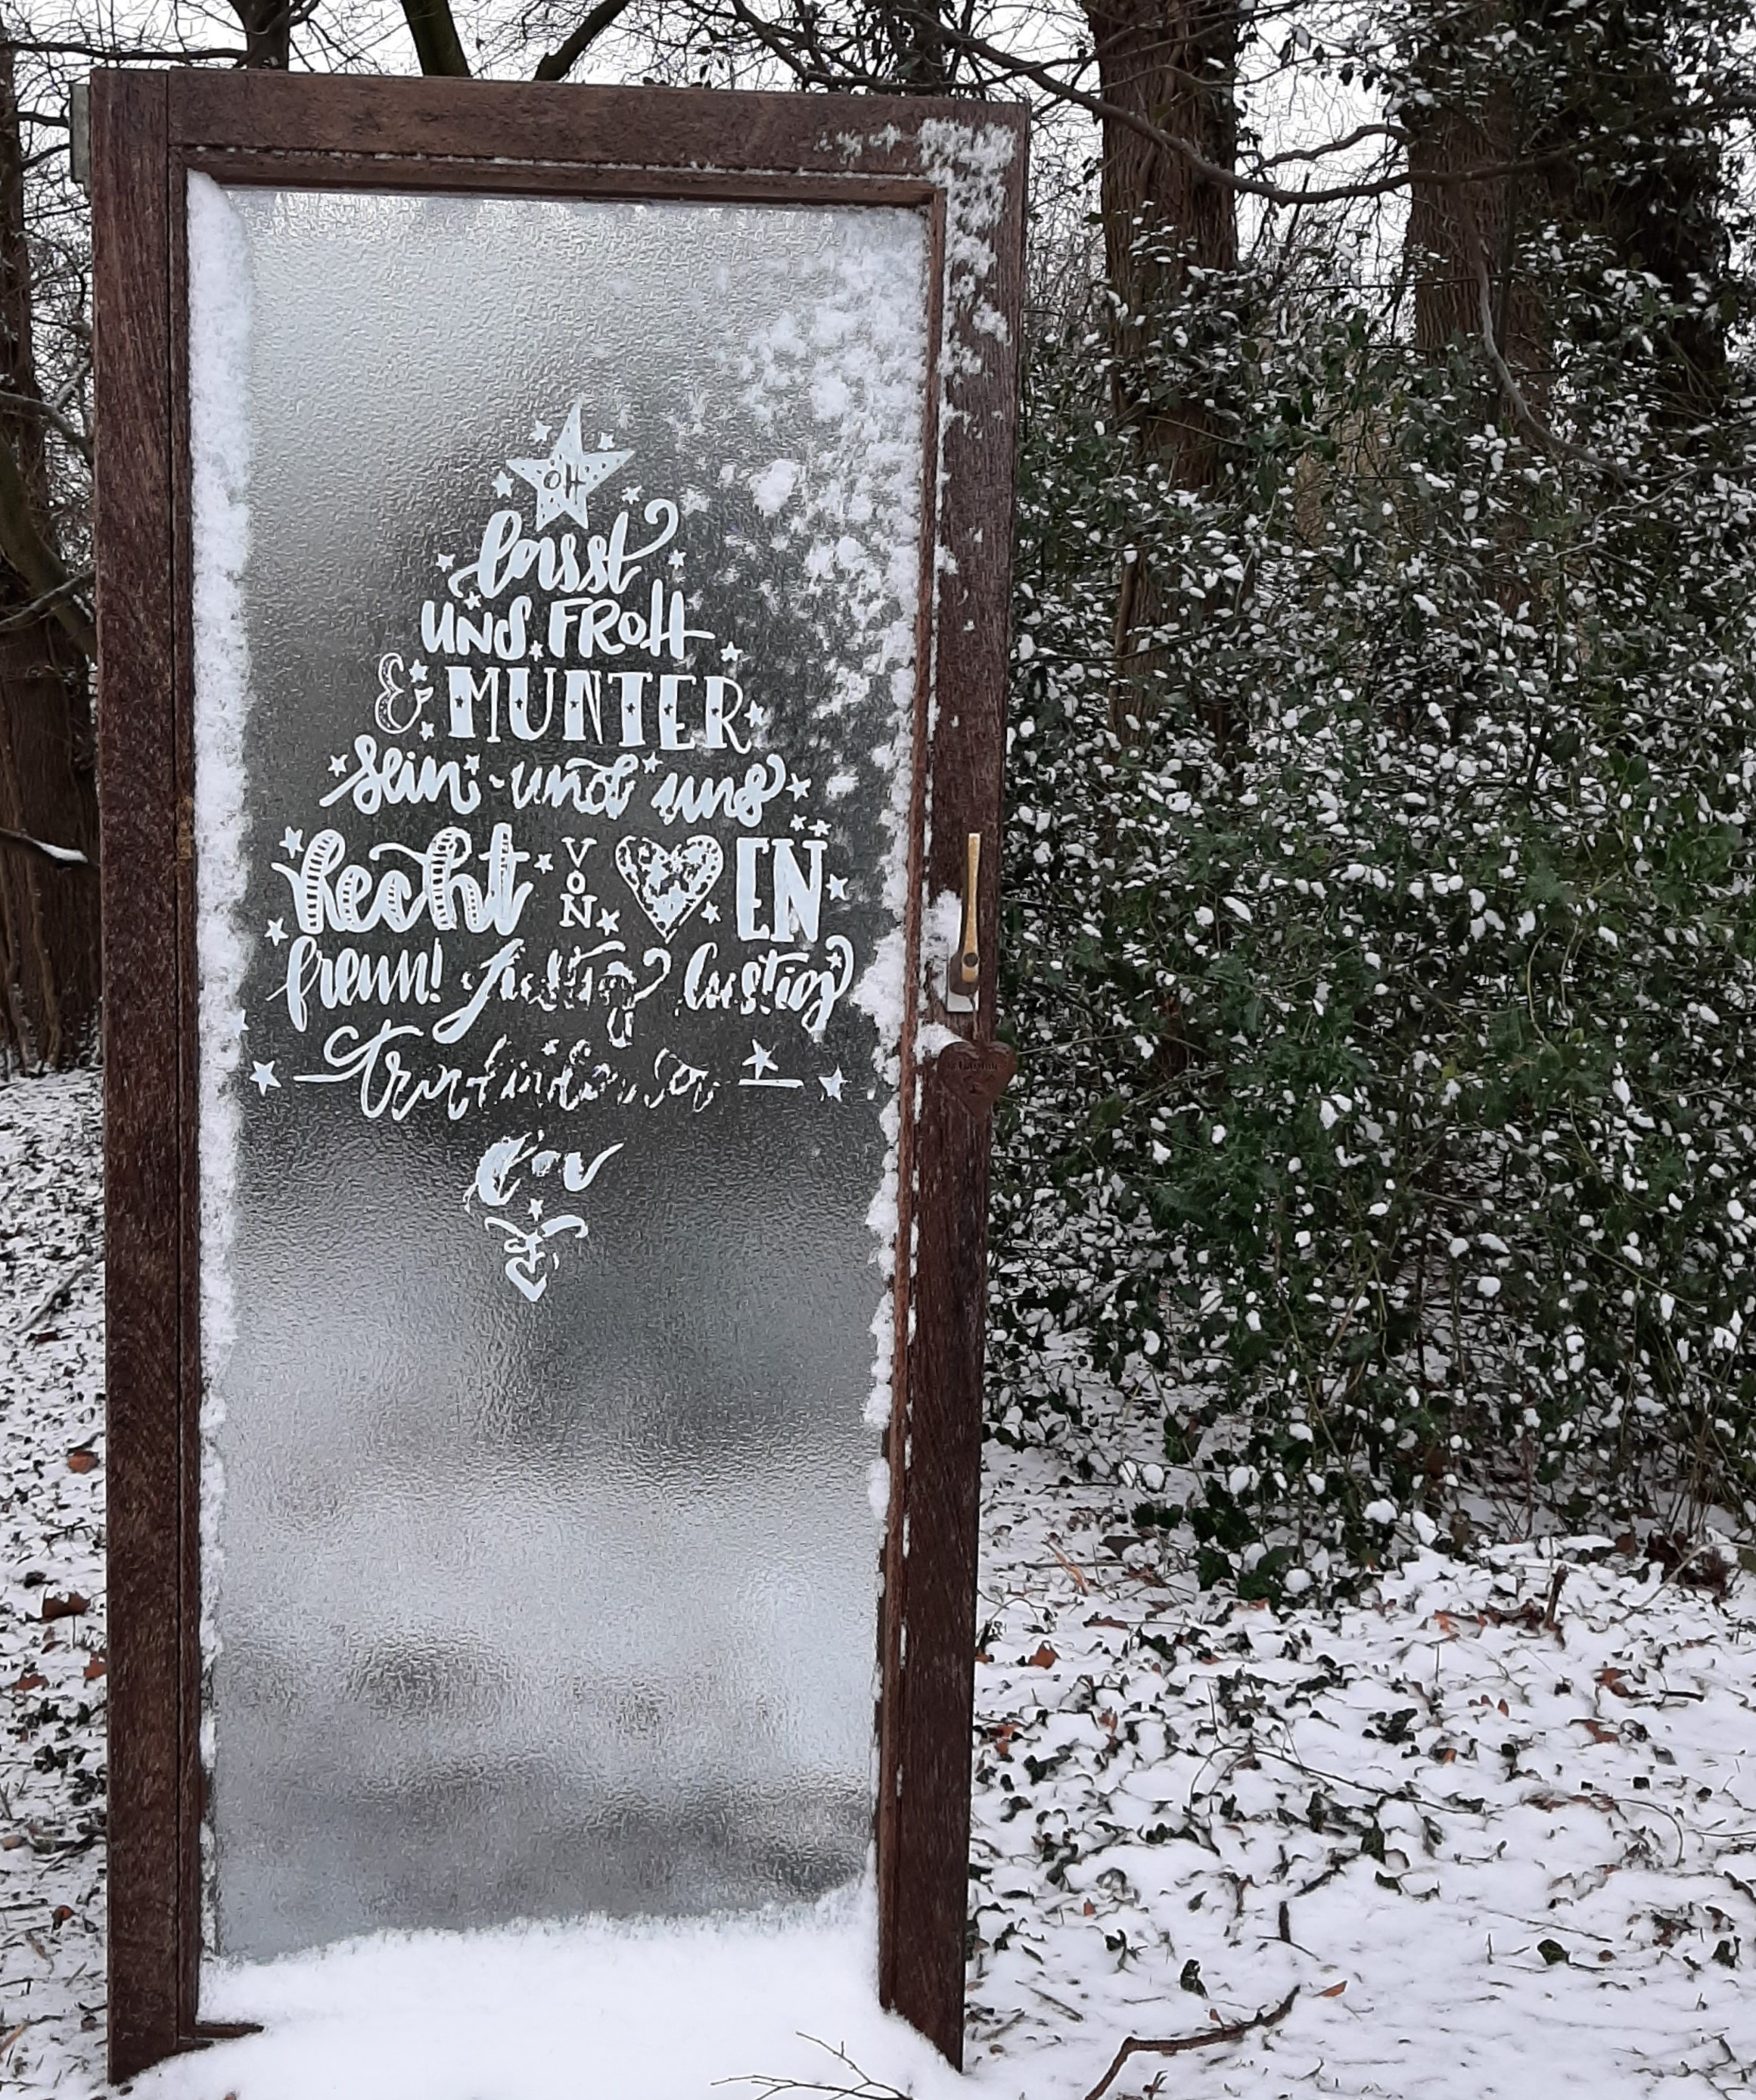 OH
lasst
UNS FROH
& MUNTER
sein und uns
Recht VON EN
freun! lustig lustig